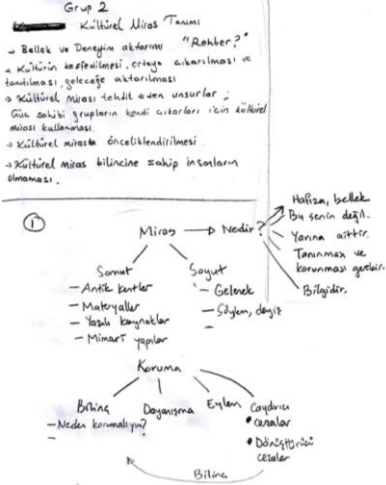 Grup 2
Kültürel Miras Tanımı
→ Bellek ve Deneyim aktarımı "Rehber?"
→ Kültürün keşfedilmesi, ortaya çıkarılması ve
tanıtılması, geleceğe aktarılması
→ Kültürel mirası tehdit eden unsurlar;
Güç sahibi grupların kendi çıkarları için kültürel
mirası kullanması.
→ Kültürel mirasın önceliklendirilmesi.
→ Kültürel miras bilincine sahip insanların
olmaması.
①
Miras → Nedir?
Hafıza, bellek
Bu senin değil.
Yarına aittir.
Tanınması ve
korunması gerekir.
Bilgidir.
Somut
- Antik kentler
- Materyaller
- Yazılı kaynaklar
- Mimari yapılar
Soyut
- Gelenek
- Söylem, deyiş
-
Koruma
Bilinç
- Neden korumalıyım?
-
Dayanışma
Eylem
Caydırıcı
• cezalar
• Dönüştürücü
cezalar
Bilinç